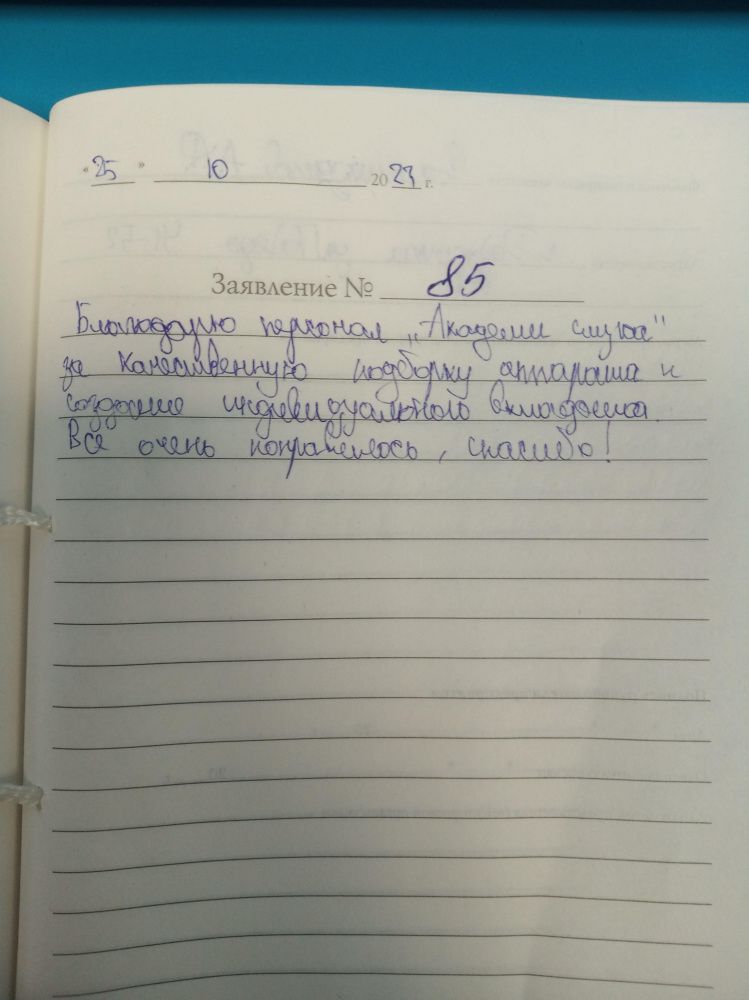 «25» 10 2023 г.
Заявление № 85
Благодарю персонал „Академии слуха"
за качественную подборку аппарата и
создание индивидуального вкладыша.
Всё очень понравилось, спасибо!